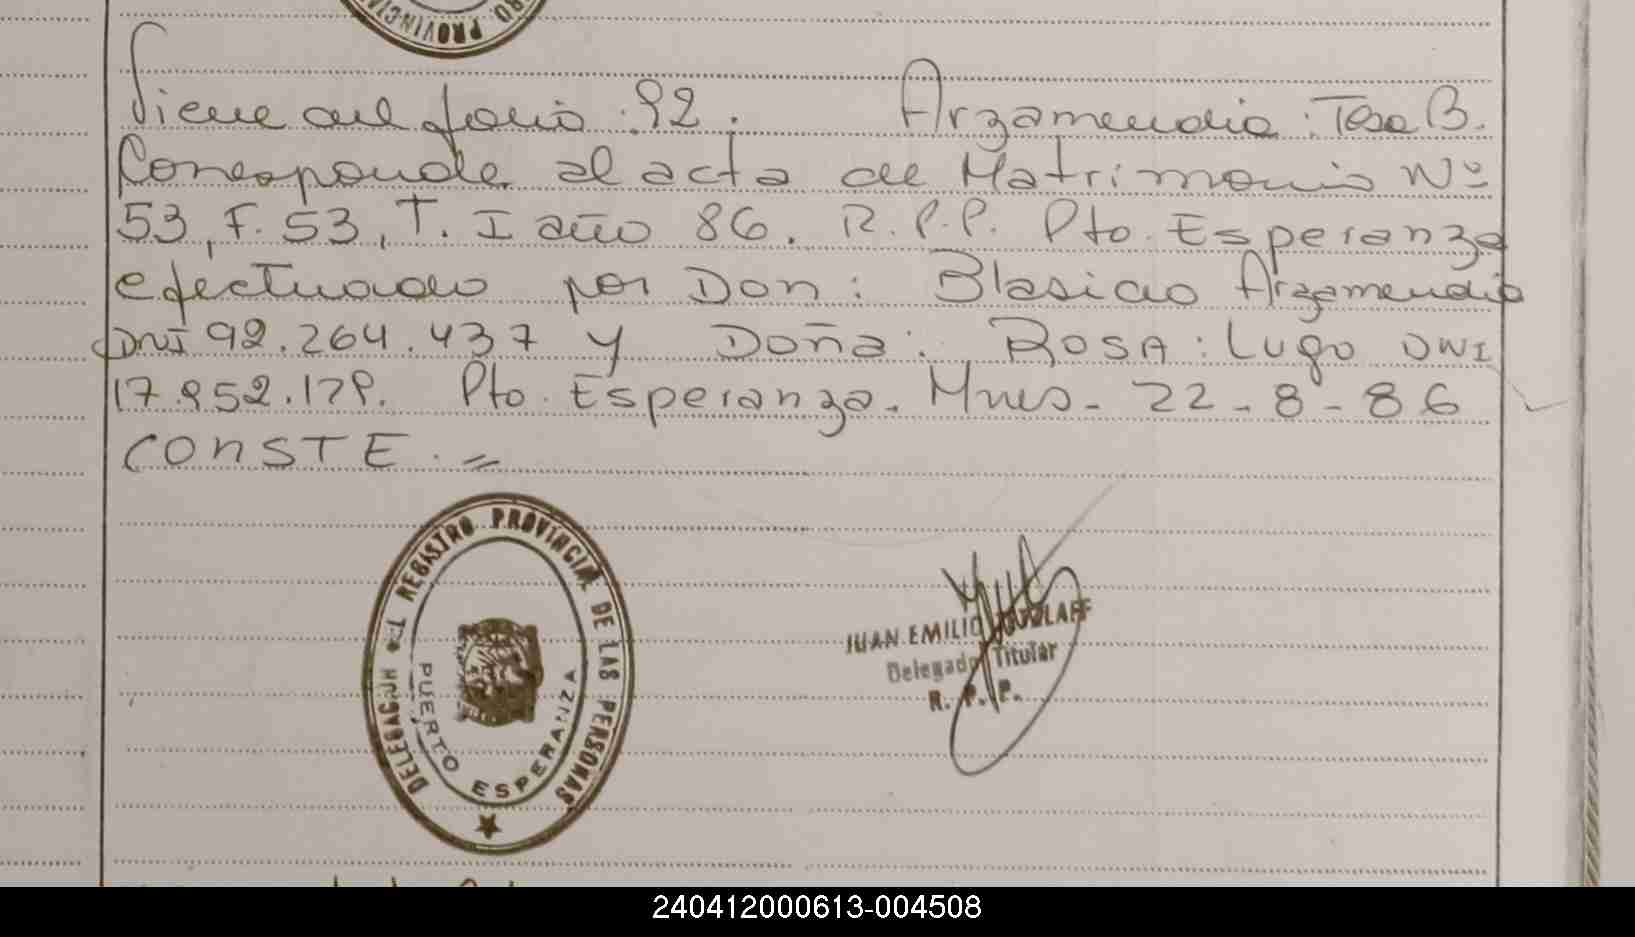 RO PROVINCIA
Viene del folio: 92. Arzamendia: Tesa B.
Corresponde al acta de Matrimonio Nº
53, F. 53, T. I año 86. R.P.P. Pto. Esperanza
efectuado por Don: Blasido Arzamendia
DNI 92.264.437 y Doña: ROSA: Lugo DNI
17.952.179. Pto. Esperanza. Mnes- 22-8-86
CONSTE.=
DELEGACION REGISTRO PROVINCIAL DE LAS PERSONAS
PUERTO ESPERANZA
JUAN EMILIO
Delegado Titular
R. P. P.
240412000613-004508